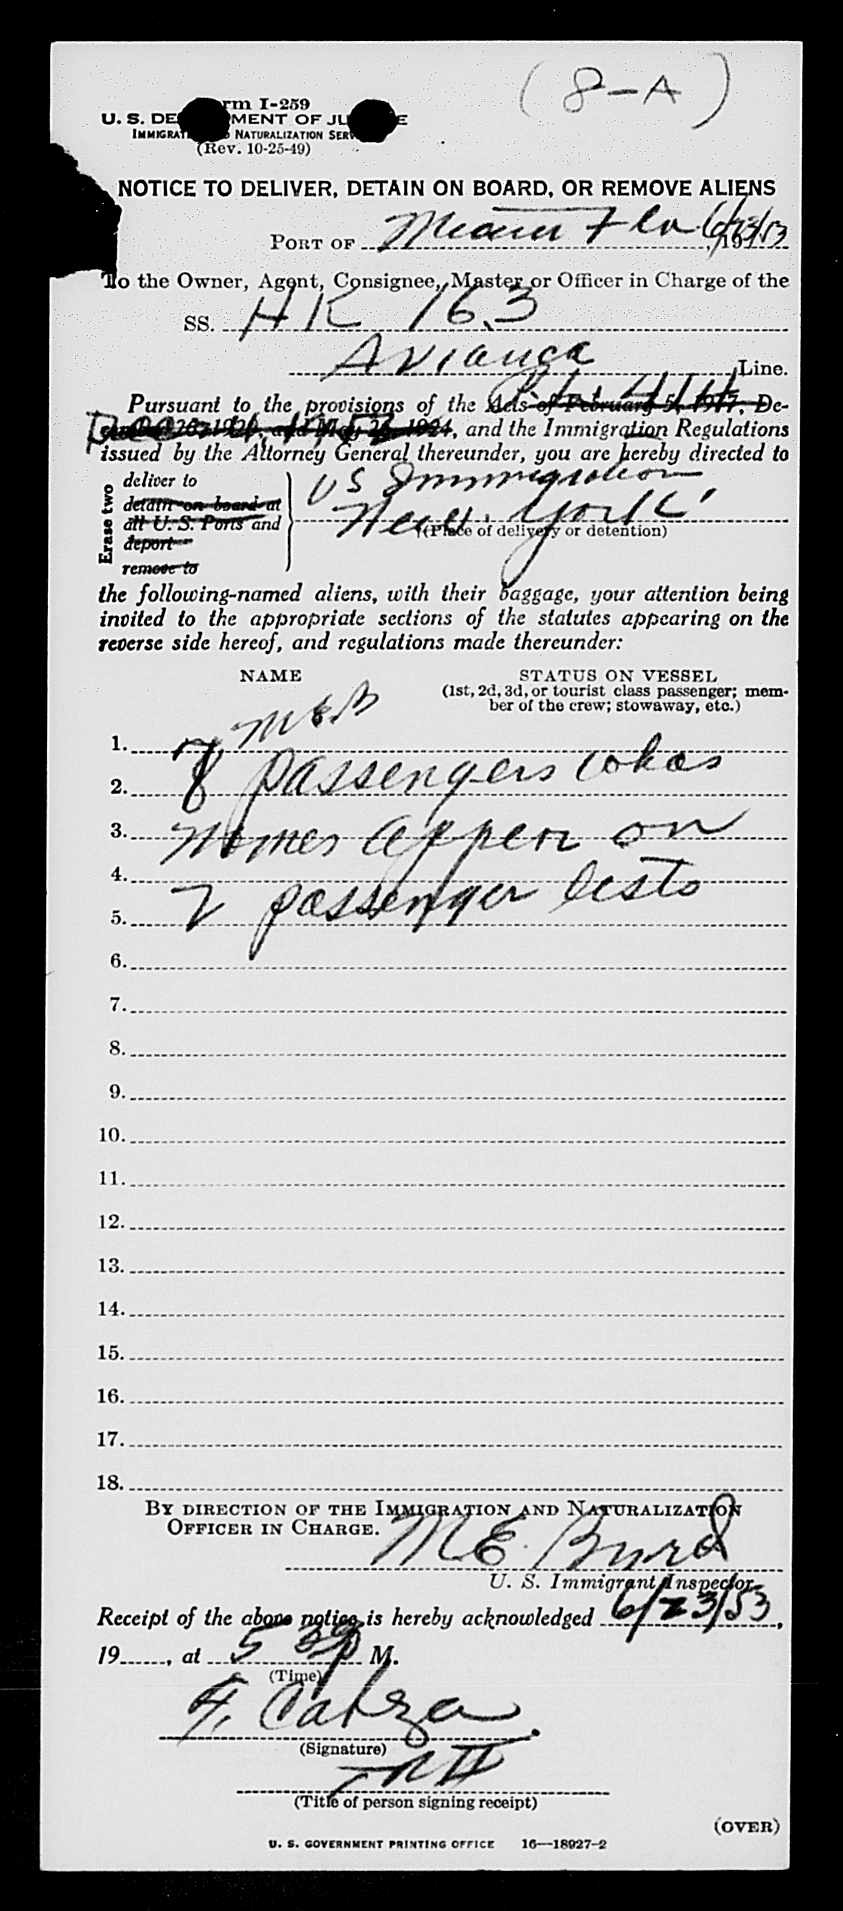 (8-A)
Form I-259
U. S. DE MENT OF JU E
IMMIGRAT NATURALIZATION SERV
(Rev. 10-25-49)
NOTICE TO DELIVER, DETAIN ON BOARD, OR REMOVE ALIENS
PORT OF Miami Fla 6/23/53, 19
To the Owner, Agent, Consignee, Master or Officer in Charge of the
SS. HK 163
Avianca Line.
P.L. 414
Pursuant to the provisions of the Acts of February 5, 1917, De-
and May 26, 1924, and the Immigration Regulations
issued by the Attorney General thereunder, you are hereby directed to
Erase two
deliver to
detain on board at
all U. S. Ports and
deport
remove to
US Immigration
New York
(Place of delivery or detention)
the following-named aliens, with their baggage, your attention being
invited to the appropriate sections of the statutes appearing on the
reverse side hereof, and regulations made thereunder:
NAME STATUS ON VESSEL
(1st, 2d, 3d, or tourist class passenger; mem-
ber of the crew; stowaway, etc.)
MEB
1. 7
2. 8 passengers whos
3. names appear on
4.
5. 2 passenger lists
6.
7.
8.
9.
10.
11.
12.
13.
14.
15.
16.
17.
18.
BY DIRECTION OF THE IMMIGRATION AND NATURALIZATION
OFFICER IN CHARGE.
M E Byrd
U. S. Immigrant Inspector.
Receipt of the above notice is hereby acknowledged 6/23/53,
19, at 5 39 p M.
(Time)
(Signature)
(Title of person signing receipt)
(OVER)
U. S. GOVERNMENT PRINTING OFFICE 16—18927-2